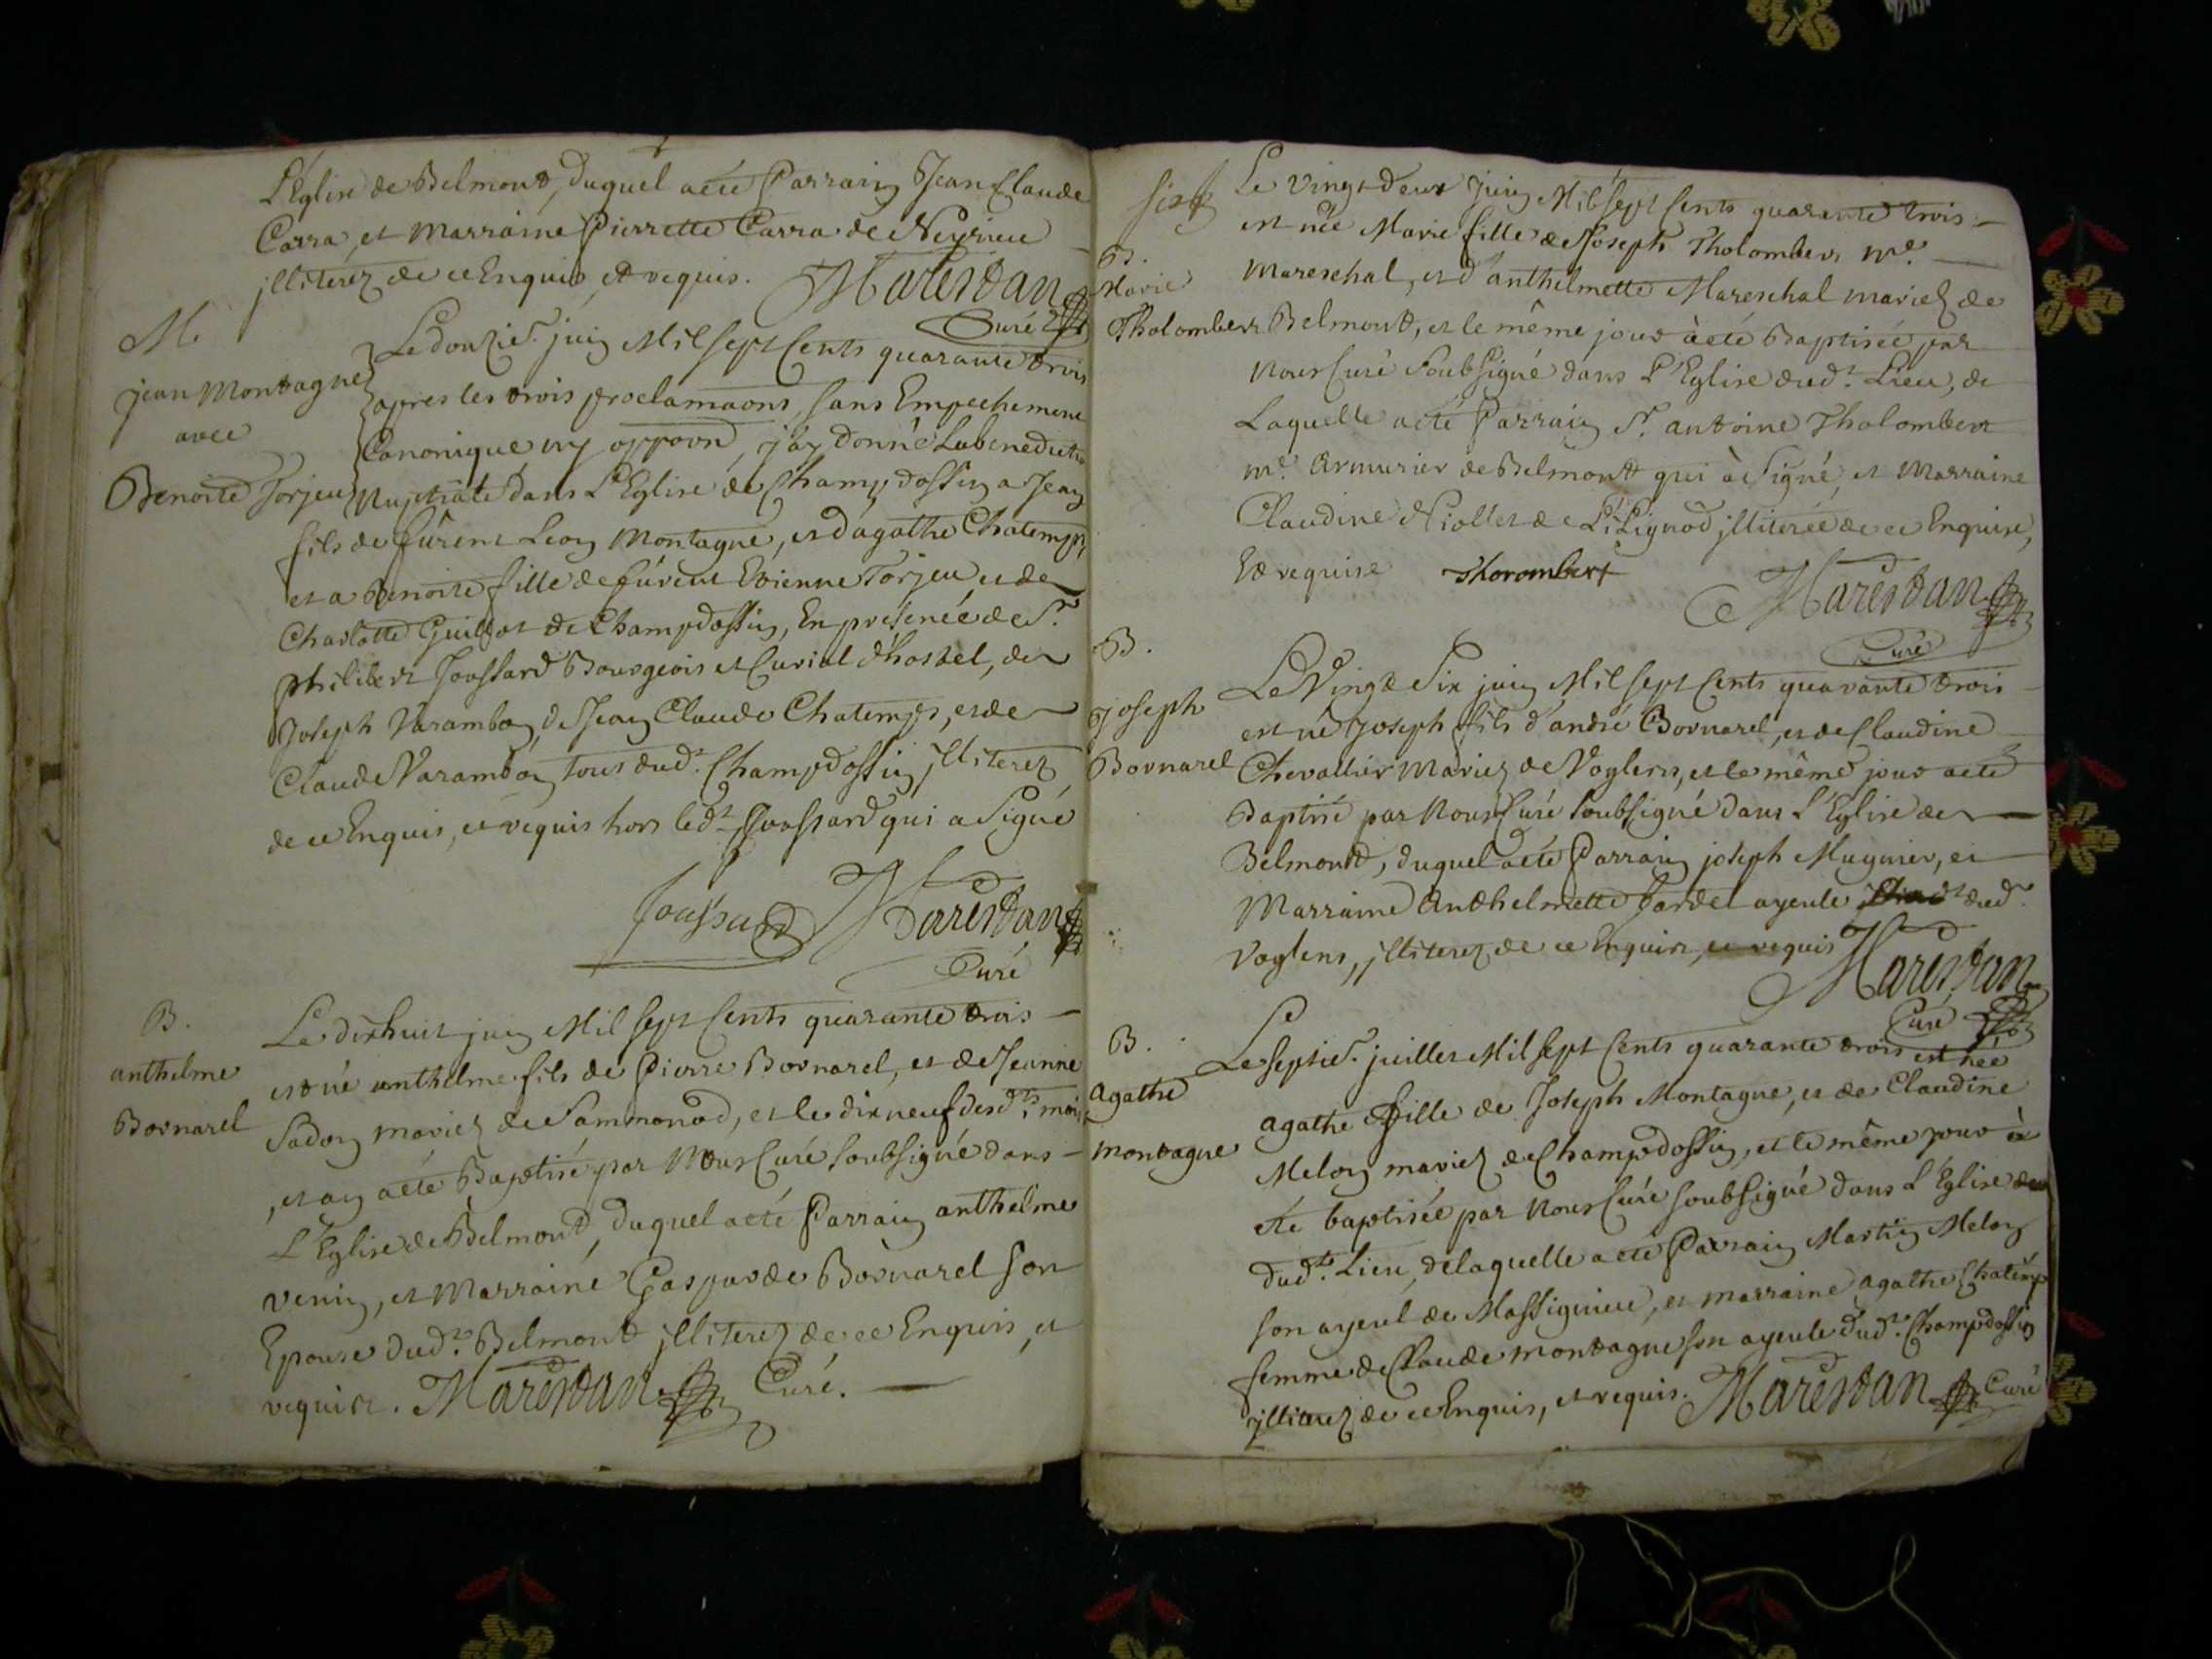 L'Eglise de Belmont, duquel a eté Parrain Jean Claude
Carra, et Marraine Pierrette Carra de Neyrieu
jlliterez de ce Enquis et requis. Marestan
Curé
M.
jean Montagne
avec
Benoite Torjeu
Le douzie. juin Mil sept Cents quarante trois
apres les trois proclamaons, sans Empechement
Canonique ny opposon, j'ay donné La benediction
Nuptiale dans L'Eglise de Champdossin a Jean
fils de fûrent Leon Montagne, et d'agathe Chatemps,
et a Benoite fille de fûrent Etienne Torjeu, et de
Charlotte Guillot de Champdossin, En presence de Sr.
philibert Joussard Bourgeois et Curial d'hostel, de
Joseph Varambon, de Jean Claude Chatemps, et de
Claude Varambon, tous dudt. Champdossin jlliterez
de ce Enquis, et requis hors ledt. Joussard qui a Signé
Joussard Marestan
Curé
B.
anthelme
Bornarel
Le dixhuit juin Mil sept Cents quarante trois
est né anthelme fils de Pierre Bornarel, et de Jeanne
Sadon mariez de Sammonod, et le dixneuf desdts. mois
, et an a eté Baptisé par Nous Curé soubsigné dans
L'Eglise de Belmont, duquel a eté Parrain anthelme
venin, et Marraine Gasparde Bornarel son
Epouse dudt. Belmont jlliterez de ce Enquis, et
requis. Marestan Curé.
B.
Marie
Tholombert
Le vingt deux juin Mil sept Cents quarante trois
est née Marie fille de Joseph Tholombert me.
Mareschal, et d'anthelmette Mareschal mariez de
Belmont, et le même jour à eté Baptisée par
Nous Curé soubsigné dans L'Eglise dudt. Lieu, de
Laquelle a eté Parrain Sr. antoine Tholombert
me. Armurier de Belmont qui à Signé, et Marraine
Claudine Niollet de Lilignod jlliterée de ce Enquise,
Et requise Thorombert
Marestan
Curé
B.
joseph
Bornarel
Le Vingt Six juin Mil sept Cents quarante trois
est né Joseph fils d'andré Bornarel, et de Claudine
Chevallier Mariez de Voglens, et le même jour a eté
Baptisé par Nous Curé soubsigné dans L'Eglise de
Belmont, duquel a eté Parrain joseph Mugnier, et
Marraine Anthelmette Jardel ayeule dudt.
Voglens, jlliterez de ce Enquis, et requis Marestan
Curé
B.
Agathe
montagne
Le septie. juillet Mil sept Cents quarante trois est née
Agathe Fille de Joseph Montagne, et de Claudine
Melon mariez de Champdossin, et le même jour à
été baptisée par Nous Curé soubsigné dans L'Eglise
dudt. Lieu, de laquelle a eté Parrain Martin Melon
son ayeul de Massignieu, et marraine agathe Chatemp
femme de Claude montagne son ayeule dudt. Champdossin
jlliterez de ce Enquis, et requis. Marestan Curé